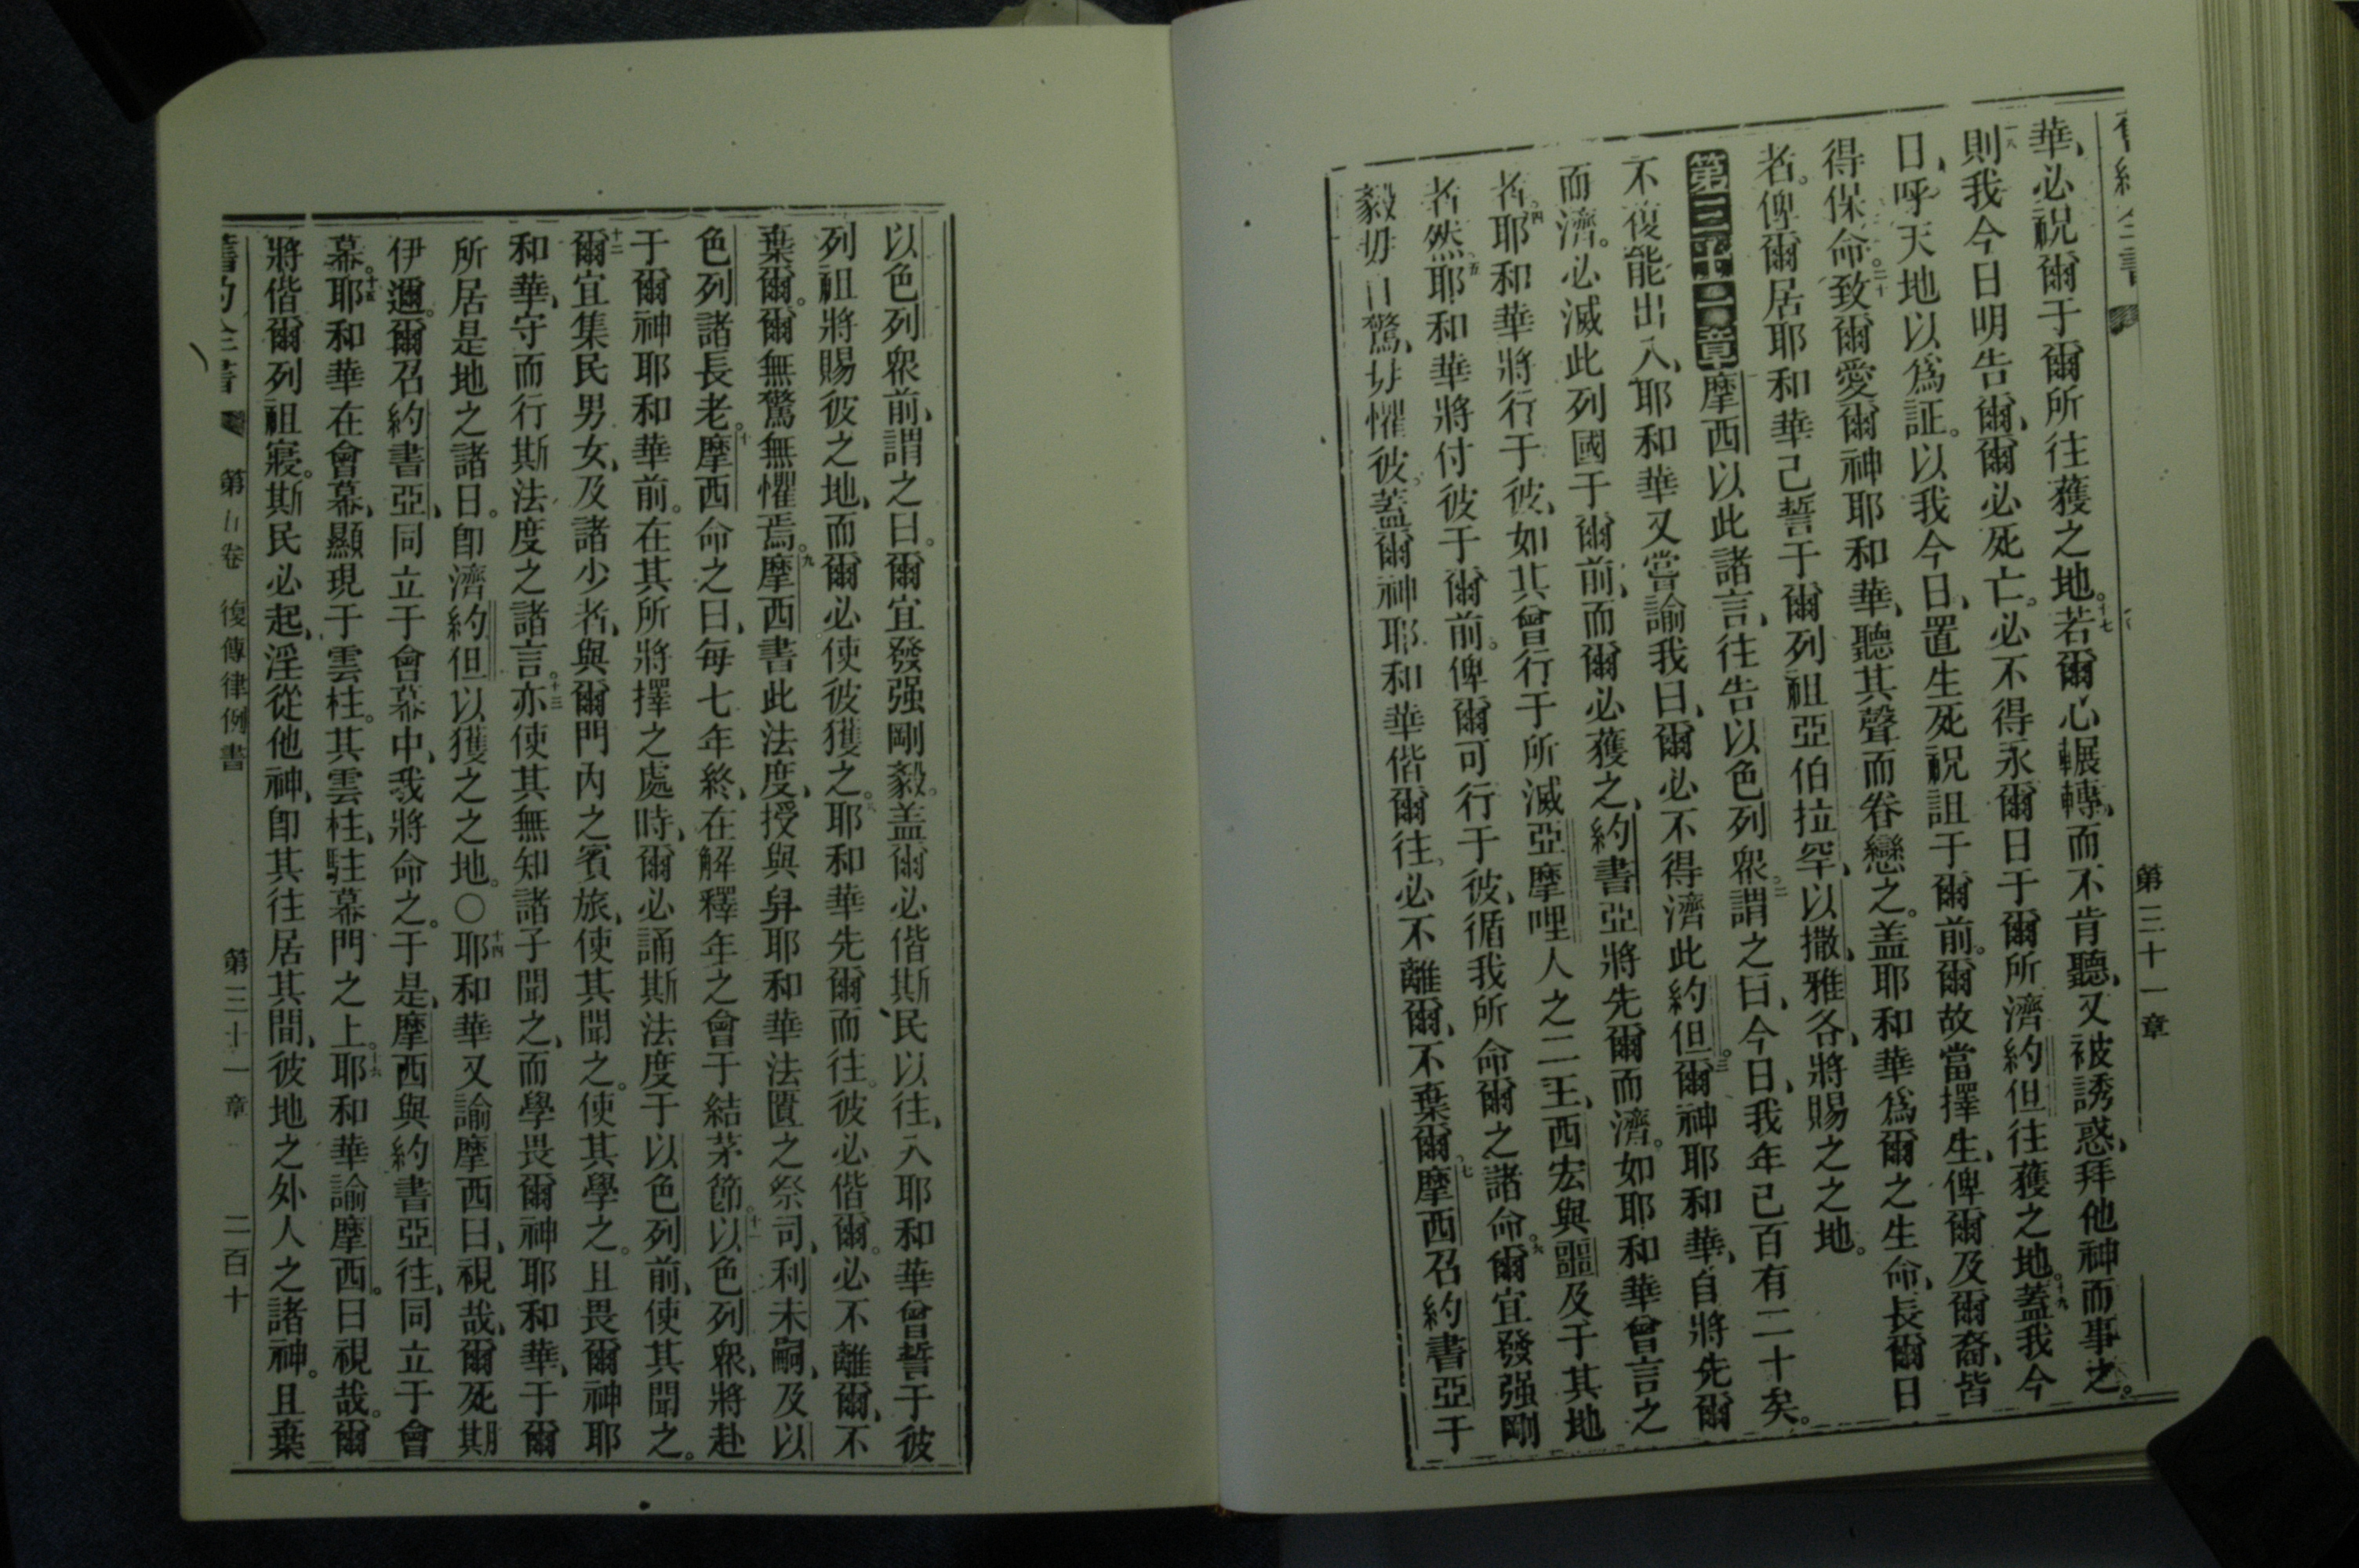 第三十一章
華、必祝爾于爾所往獲之地。十七若爾心輾轉、而不肯聽、又被誘惑、拜他神而事之。
十八則我今日明告爾、爾必死亡。必不得永爾日于爾所濟約但往獲之地。十九蓋我今
日、呼天地以爲証。以我今日、置生死祝詛于爾前。爾故當擇生、俾爾及爾裔、皆
得保命。二十致爾愛爾神耶和華、聽其聲而眷戀之。盖耶和華爲爾之生命、長爾日
者。俾爾居耶和華己誓于爾列祖亞伯拉罕、以撒、雅各、將賜之之地。
第三十一章摩西以此諸言、往告以色列衆。二謂之曰、今日、我年已百有二十矣。
不復能出入、耶和華又當諭我曰、爾必不得濟此約但。三爾神耶和華、自將先爾
而濟。必滅此列國于爾前、而爾必獲之、約書亞將先爾而濟。如耶和華曾言之
者。四耶和華將行于彼、如其曾行于所滅亞摩哩人之二王、西宏與噩及于其地
者然。五耶和華將付彼于爾前。俾爾可行于彼、循我所命爾之諸命。六爾宜發强剛
毅毋自驚、毋懼彼。蓋爾神耶和華偕爾往。必不離爾、不棄爾。七摩西召約書亞于
以色列衆前、謂之曰。爾宜發强剛毅。盖爾必偕斯民以往、入耶和華曾誓于彼
列祖將賜彼之地、而爾必使彼獲之。八耶和華先爾而往。彼必偕爾。必不離爾、不
棄爾。爾無驚無懼焉。九摩西書此法度、授與舁耶和華法匱之祭司、利未嗣、及以
色列諸長老。十摩西命之曰、每七年終、在解釋年之會于結茅節。十一以色列衆、將赴
于爾神耶和華前。在其所將擇之處時、爾必誦斯法度于以色列前、使其聞之。
十二爾宜集民男女、及諸少者、與爾門內之賓旅、使其聞之。使其學之。且畏爾神耶
和華、守而行斯法度之諸言。十三亦使其無知諸子聞之、而學畏爾神耶和華、于爾
所居是地之諸日。卽濟約但以獲之之地。○十四耶和華又諭摩西曰、視哉、爾死期
伊邇。爾召約書亞、同立于會幕中、我將命之。于是、摩西與約書亞往、同立于會
幕。十五耶和華在會幕、顯現于雲柱。其雲柱、駐幕門之上。十六耶和華諭摩西。曰視哉。爾
將偕爾列祖寢。斯民必起、淫從他神、卽其往居其間、彼地之外人之諸神。且棄
舊約全書 第五卷 復傳律例書 第三十一章 二百十